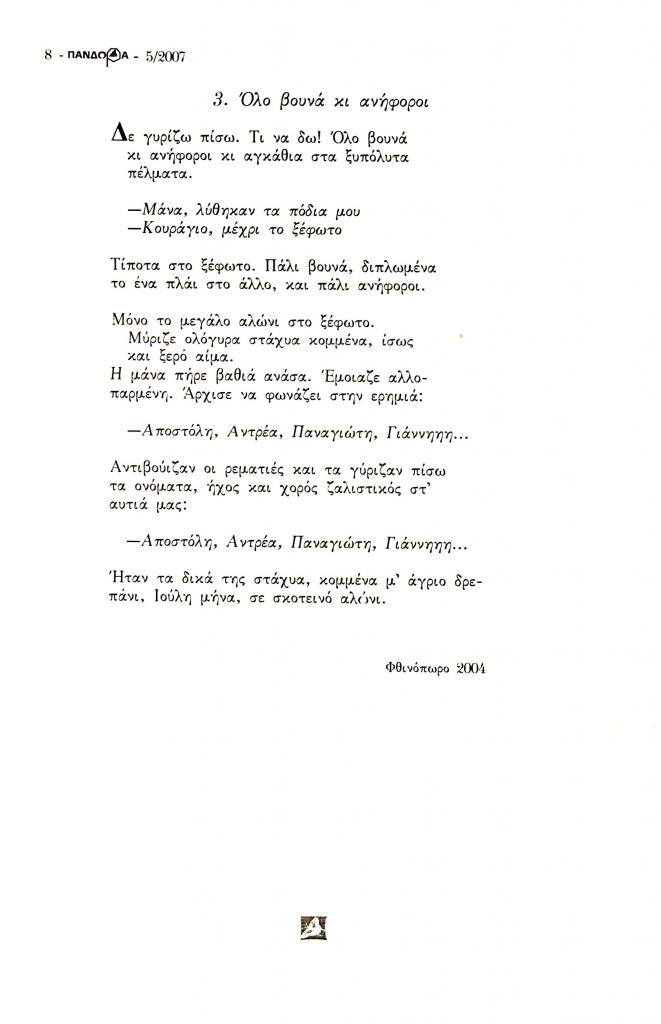 8 - ΠΑΝΔΟΡΑ - 5/2007
3. Όλο βουνά κι ανήφοροι
Δε γυρίζω πίσω. Τι να δω! Όλο βουνά
κι ανήφοροι κι αγκάθια στα ξυπόλυτα
πέλματα.
—Μάνα, λύθηκαν τα πόδια μου
—Κουράγιο, μέχρι το ξέφωτο
Τίποτα στο ξέφωτο. Πάλι βουνά, διπλωμένα
το ένα πλάι στο άλλο, και πάλι ανήφοροι.
Μόνο το μεγάλο αλώνι στο ξέφωτο.
Μύριζε ολόγυρα στάχυα κομμένα, ίσως
και ξερό αίμα.
Η μάνα πήρε βαθιά ανάσα. Έμοιαζε αλλο-
παρμένη. Άρχισε να φωνάζει στην ερημιά:
—Αποστόλη, Αντρέα, Παναγιώτη, Γιάννηηη...
Αντιβούιζαν οι ρεματιές και τα γύριζαν πίσω
τα ονόματα, ήχος και χορός ζαλιστικός στ'
αυτιά μας:
—Αποστόλη, Αντρέα, Παναγιώτη, Γιάννηηη...
Ήταν τα δικά της στάχυα, κομμένα μ' άγριο δρε-
πάνι, Ιούλη μήνα, σε σκοτεινό αλώνι.
Φθινόπωρο 2004